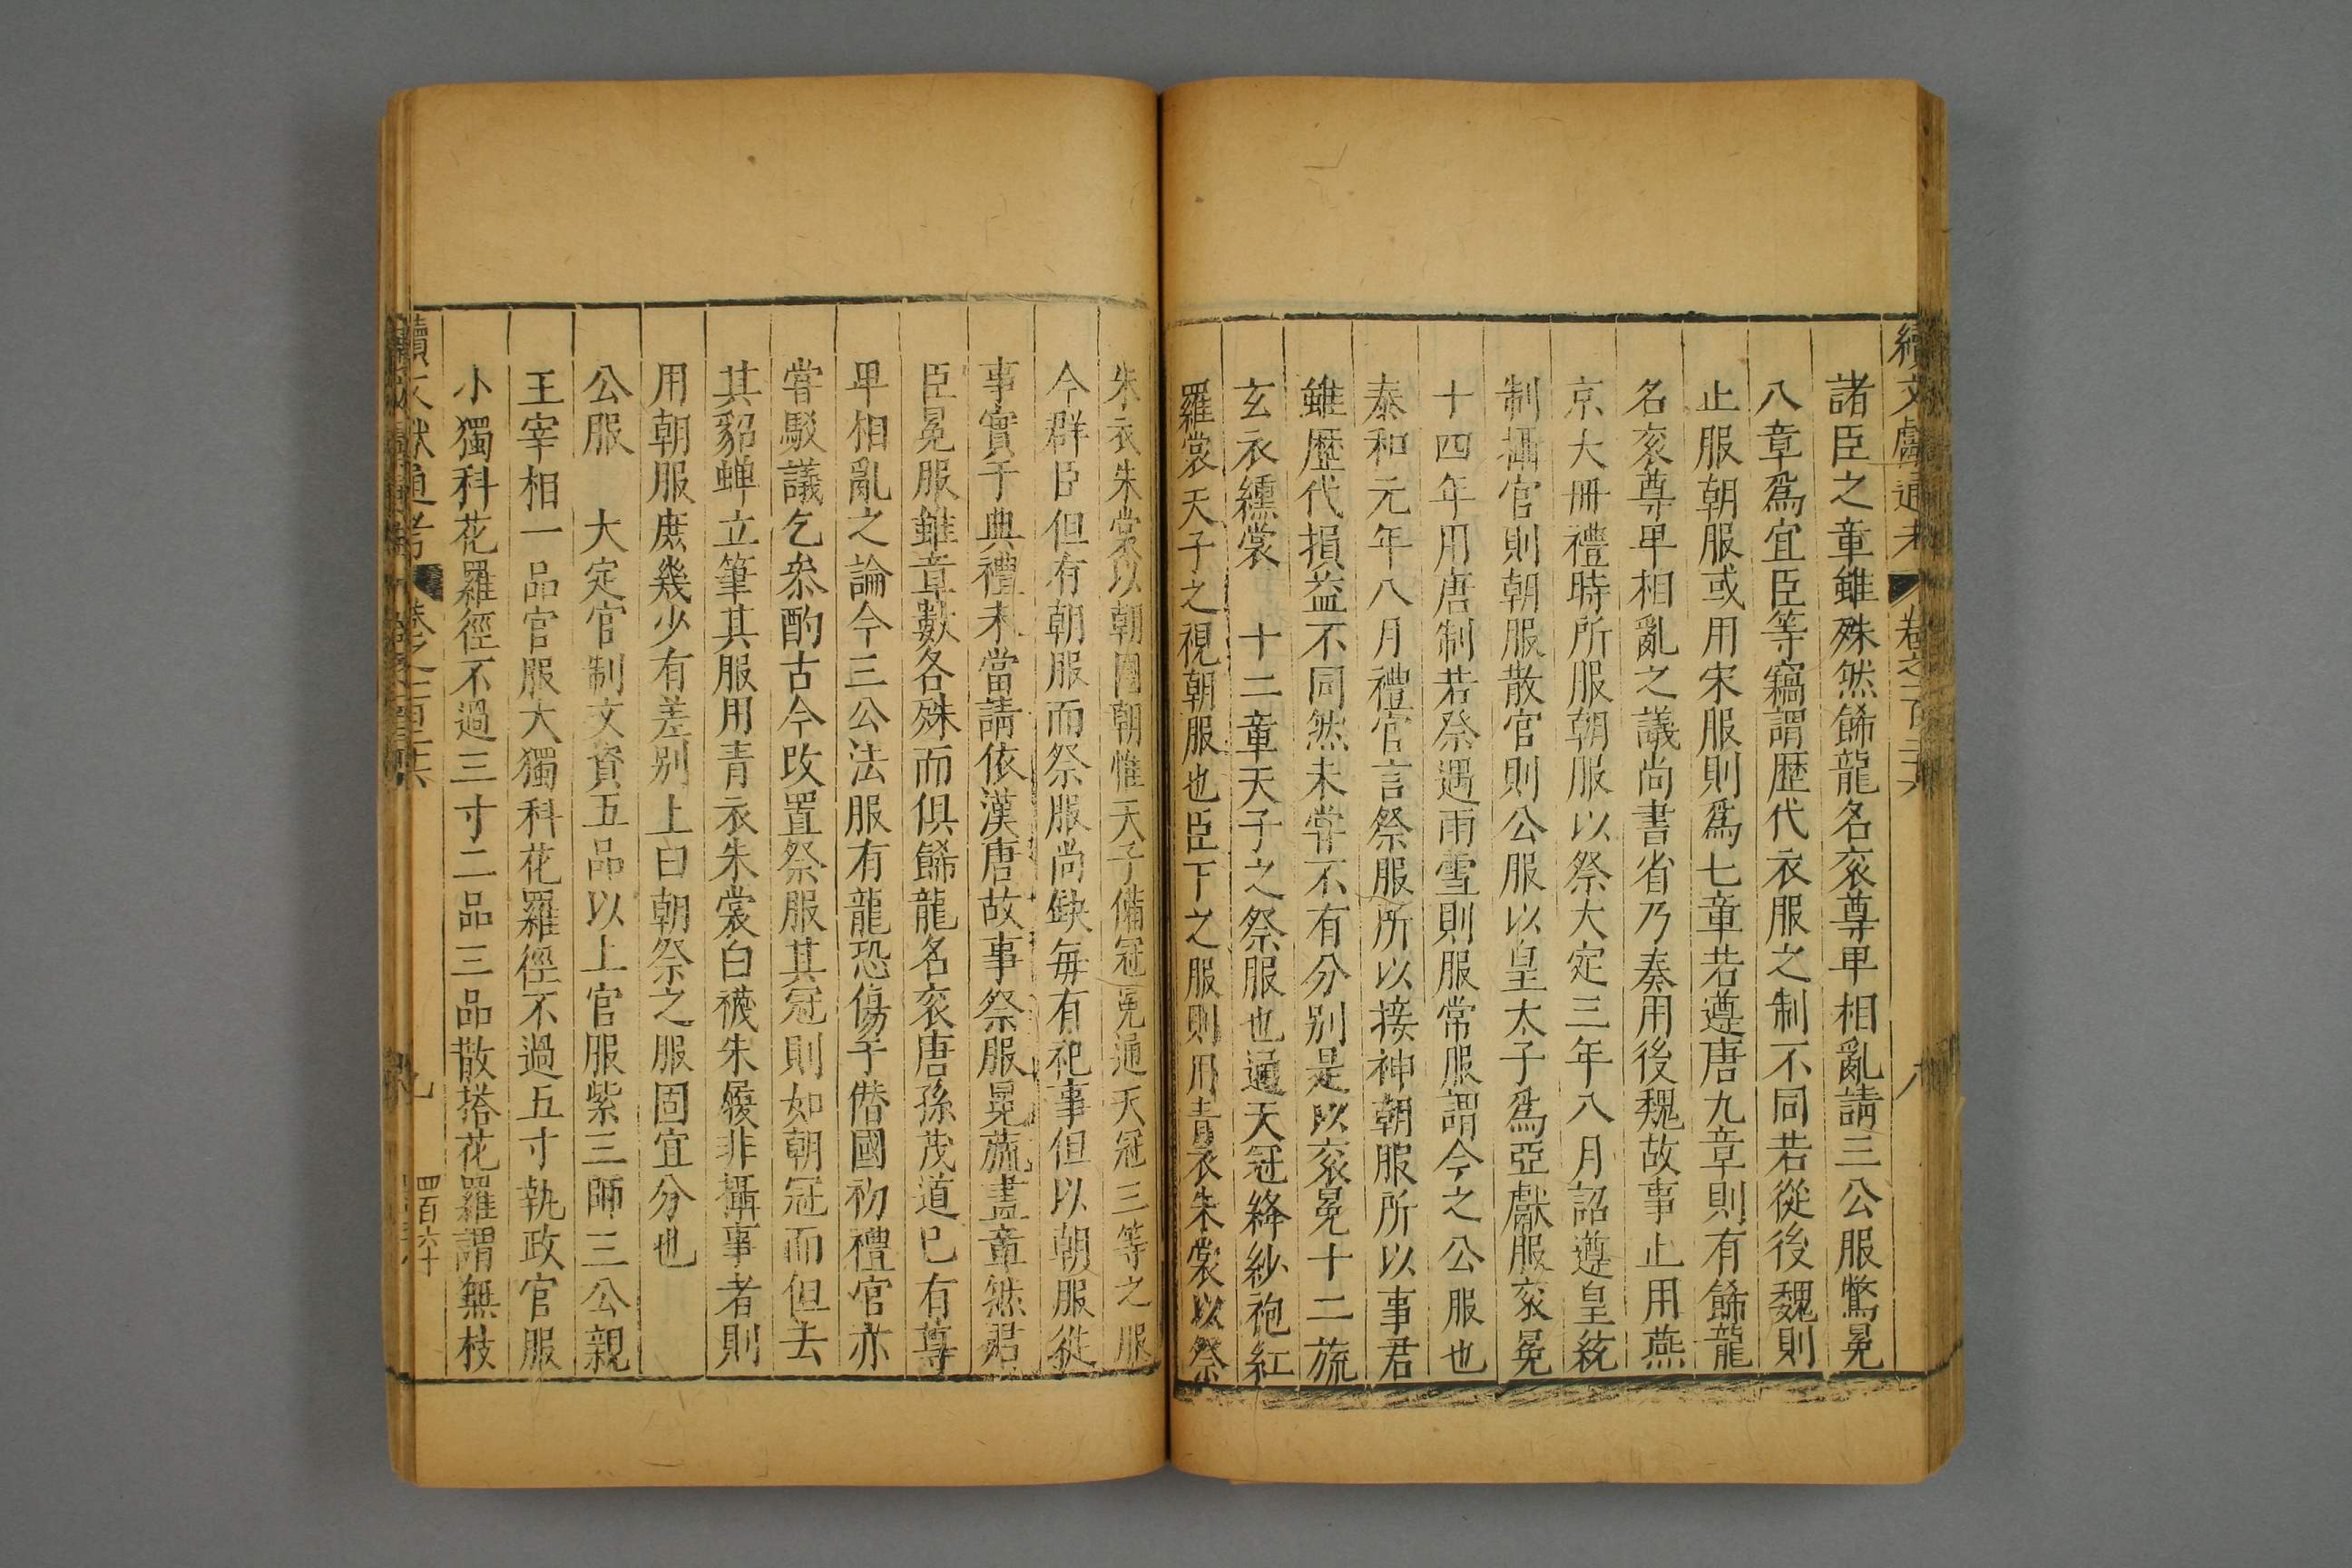 續文獻通考 卷之一百二十六 八
諸臣之章雖殊然餙龍名衮尊卑相亂請三公服鷩冕
八章爲宜臣等竊謂歷代衣服之制不同若從後魏則
止服朝服或用宋服則爲七章若遵唐九章則有餙龍
名衮尊卑相亂之議尚書省乃奏用後魏故事止用燕
京大冊禮時所服朝服以祭大定三年八月詔遵皇統
制攝官則朝服散官則公服以皇太子爲亞獻服衮冕
十四年用唐制若祭遇雨雪則服常服謂今之公服也
泰和元年八月禮官言祭服所以接神朝服所以事君
雖歷代損益不同然未嘗不有分别是以衮冕十二旒
玄衣纁裳 十二章天子之祭服也通天冠絳紗袍紅
羅裳天子之視朝服也臣下之服則用青衣朱裳以祭
朱衣朱裳以朝國朝惟天子備冠冕通天冠三等之服
今群臣但有朝服而祭服尚缺每有祀事但以朝服從
事實于典禮未當請依漢唐故事祭服冕旒畫章然君
臣冕服雖章數各殊而俱餙龍名衮唐孫茂道已有尊
卑相亂之論今三公法服有龍恐傷于僭國初禮官亦
嘗駁議乞叅酌古今改置祭服其冠則如朝冠而但去
其貂蟬立筆其服用青衣朱裳白襪朱履非攝事者則
用朝服庶幾少有差别上曰朝祭之服固宜分也
公服 大定官制文資五品以上官服紫三師三公親
王宰相一品官服大獨科花羅徑不過五寸執政官服
小獨科花羅徑不過三寸二品三品散搭花羅謂無枝
續文獻通考 卷之一百二十六 九 四百六十